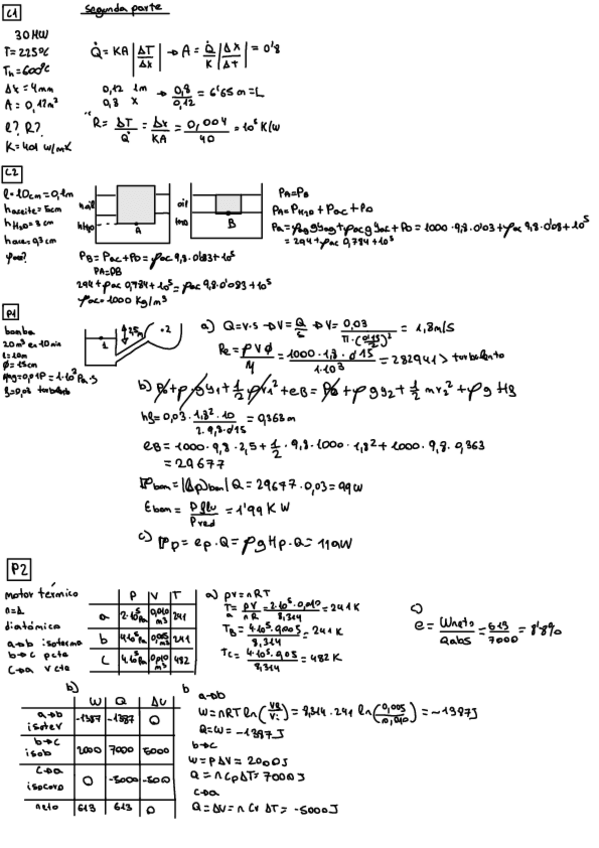 C1 segunda parte
30 MW
T=225ºC
Th=600ºC
Δx=4mm
A=0,12m²
l? R?
K=401 W/mK
Q̇ = KA |ΔT/Δx| → A = Q̇/K |Δx/ΔT| = 0'8
0,12 1m
0,8 x → 0,8/0,12 = 6'65 m = L
R = ΔT/Q̇ = Δx/KA = 0,004/40 = 10⁵ K/W
C2
l=10cm=0,1m
haceite=5cm
hH₂O=3cm
haire=0,3cm
ρac?
hoil
hH₂O
A
oil
H₂O
B
PA=PB
PA=PH₂O+Pac+P0
PA=ρg gyag+ρac g yac+P0=1000·9,8·0'03+ρac 9,8·0'08+10⁵
=294+ρac 0,784+10⁵
PB=Pac+P0=ρac 9,8·0'083+10⁵
PA=PB
294+ρac 0,784+10⁵=ρac 9,8·0,083+10⁵
ρac=1000 Kg/m³
P1
bomba
20m³ en 10min
l=10m
ø=15cm
f=0,03 turbulento
1
2,5m
·2
a) Q=V·S → V=Q/S → V= 0,03/π·(0'15/2)² = 1,8m/s
Re= ρVø/η = 1000·1,8·0'15/1·10³ = 282941 > turbulento
b) P0+ρgy1+½ρv1²+eB=P0+ρgy2+½mv2²+ρg Hg
hg=0,03·1,8²·10/2·9,8·0'15 = 0,363m
eB=1000·9,8·2,5+½·9,8·1000·1,8²+1000·9,8·0,363
=29677
Pbom=|Δp|bom|Q=29677·0,03=99W
Ebom= Pflu/Pred = 1'99 KW
c) Pp=ep·Q=ρgHp·Q=119W
P2
motor térmico
n=1
diatómica
a→b isoterma
b→c p cte
c→a v cte
P V T
a 2·10⁵Pa 0,010m³ 241
b 4·10⁵Pa 0,005m³ 241
c 4·10⁵Pa 0,010m³ 482
a) pv=nRT
Ta= PV/nR = 2·10⁵·0,010/8,314 = 241K
TB= 4·10⁵·0,005/8,314 = 241 K
Tc= 4·10⁵·0,05/8,314 = 482 K
c)
e= Wneto/Qabs = 613/7000 = 8'8%
b)
W Q ΔU
a→b isoter -1387 -1387 0
b→c isob 2000 7000 5000
c→a isocoro 0 -5000 -5000
neto 613 613 0
b
a→b
W=nRT ln(VB/Vi)=8,314·241 ln(0,005/0,010)=-1387J
Q=W=-1387J
b→c
W=pΔV=2000J
Q=nCpΔT=7000J
c→a
Q=ΔU=nCvΔT=-5000J